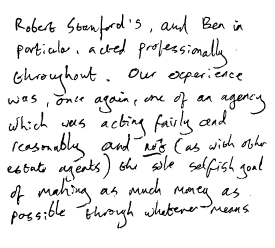 Robert Stanford's, and Ben in
particular, acted professionally
throughout. Our experience
was, once again, one of an agency
which was acting fairly and
reasonably and not (as with other
estate agents) the sole selfish goal
of making as much money as
possible through whatever means